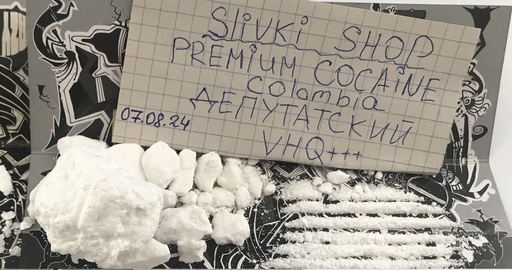 Slivki SHOP
PREMiUM COCAiNE
Colombia
ДЕПУТАТСКИЙ
07.08.24
VHQ+++